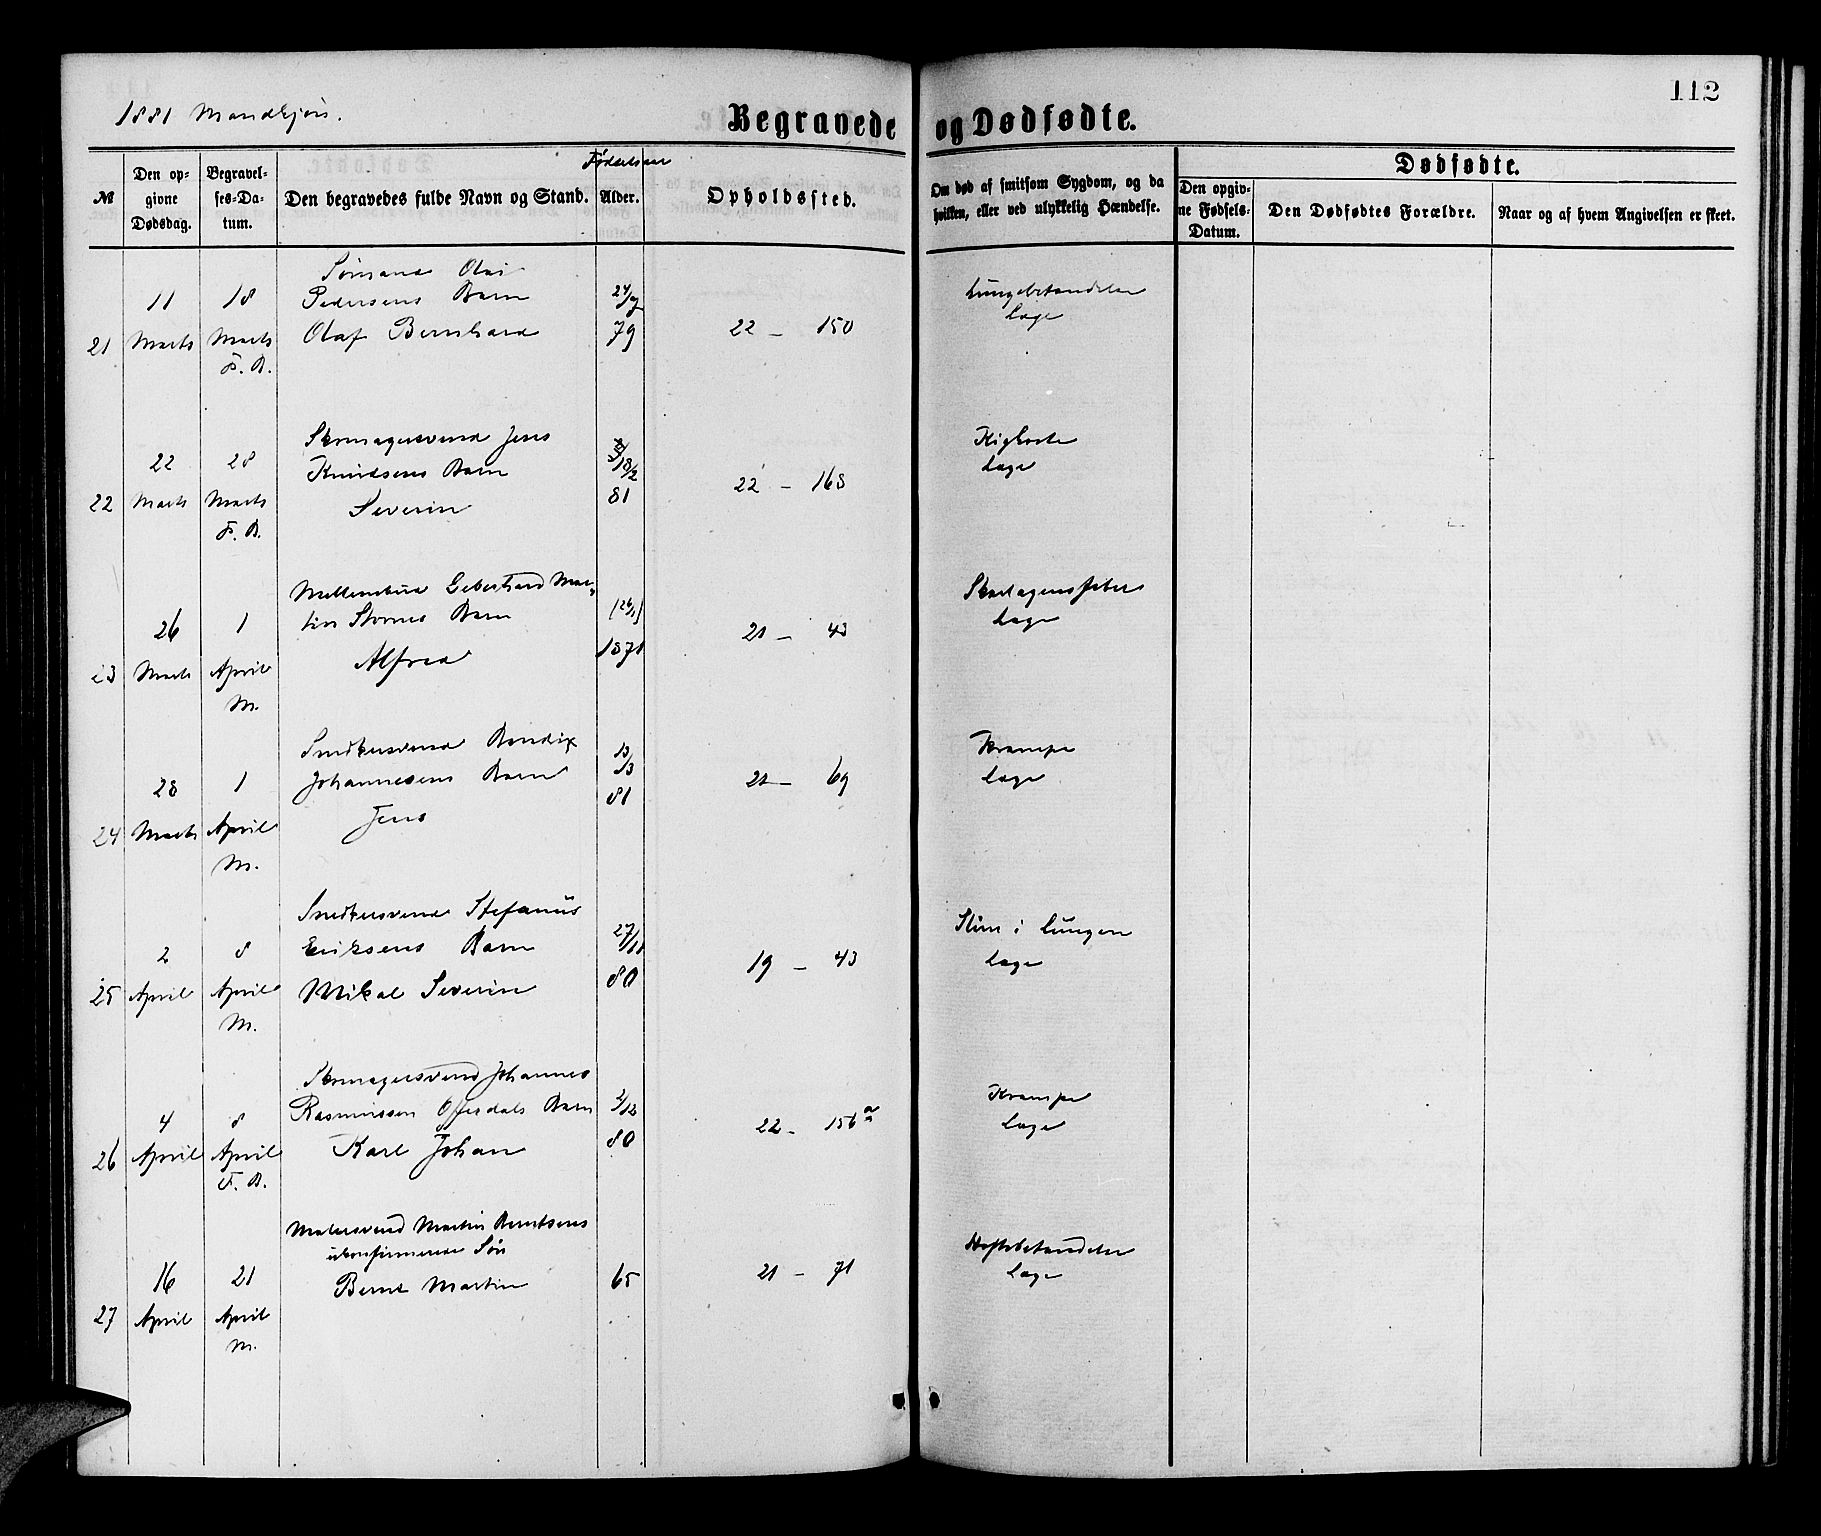 112
1881 Mandkjøn.
Begravede og Dødfødte.
№
Den opgivne Dødsdag.
Begravelses-Datum.
Den begravedes fulde Navn og Stand.
Fødselsaar
Alder.
Opholdssted.
Om død af smitsom Sygdom, og da hvilken, eller ved ulykkelig Hændelse.
Dødfødte.
Den opgivne Fødsels-Datum.
Den Dødfødtes Forældre.
Naar og af hvem Angivelsen er skeet.
21
11 Marts
18 Marts
F. B.
Sømand Olai
Pedersens Barn
Olaf Bernhard
79
22 - 150
Lungebetændelse
Læge
22
22 Marts
28 Marts
F. B.
Skomagersvend Jens
Knudsens Barn
Severin
18/2
81
22 - 168
Kighoste
Læge
23
26 Marts
1 April
M.
Barn
Alfred
(26/1)
1871
21 - 43
Skarlagensfeber
Læge
24
28 Marts
1 April
M.
Snedkersvend Bendix
Johannesens Barn
Jens
13/3
81
21 - 69
Krampe
Læge
25
2 April
8 April
M.
Snedkersvend Stefanus
Eriksens Barn
Mikal Severin
27/11
80
19 - 43
Slim i Lungen
Læge
26
4 April
8 April
F. B.
Skomagersvend Johannes
Rasmussen Barn
Karl Johan
2/12
80
22 - 156 a
Krampe
Læge
27
16 April
21 April
M.
Malersvend Martin Berntsens
ukonfirmerede Søn
Bernt Martin
65
21 - 71
Hoftebetændelse
Læge